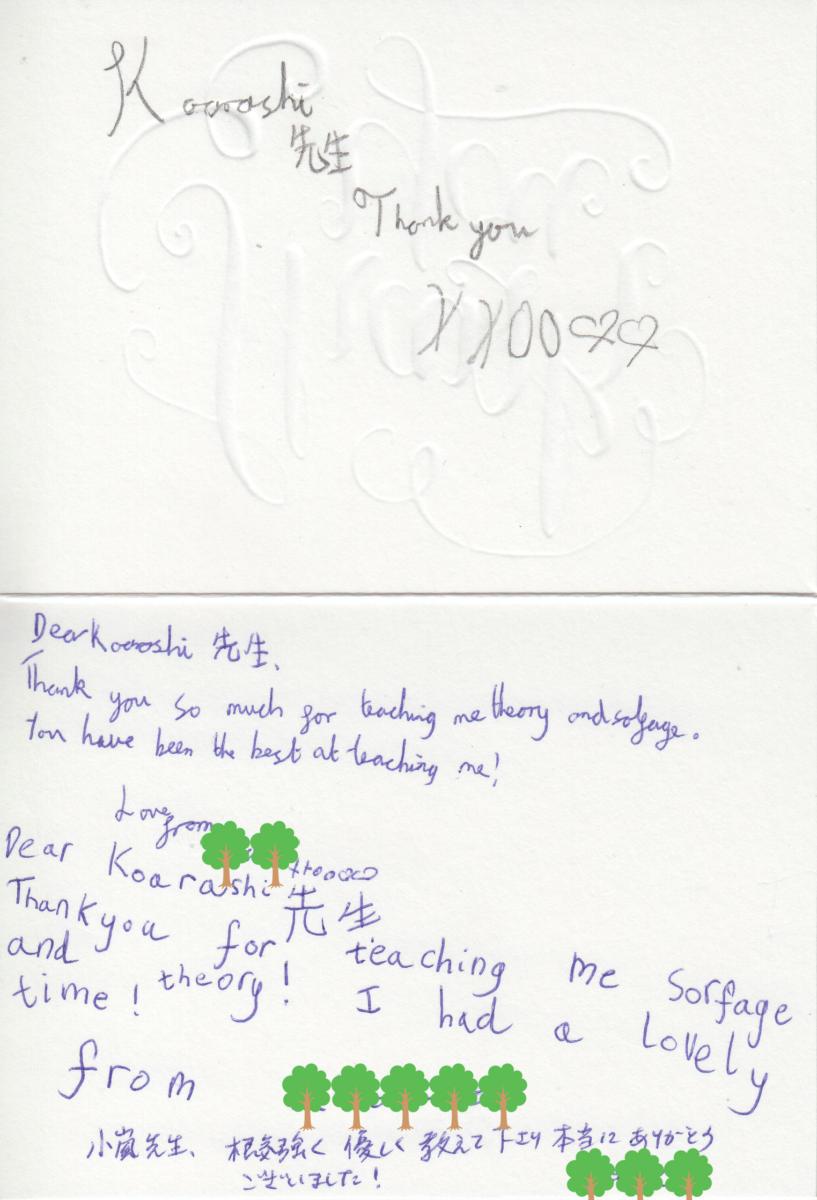 Koarashi
先生
Thank you
XXOO♡♡
Dear Koarashi 先生、
Thank you so much for teaching me theory and solfage.
You have been the best at teaching me!
Love from
xxoo♡♡
Dear Koarashi 先生
Thankyou for teaching me Sorfage
and theory! I had a lovely
time!
from
小嵐先生、根気強く優しく教えて下エリ本当にありがとう
ございました!